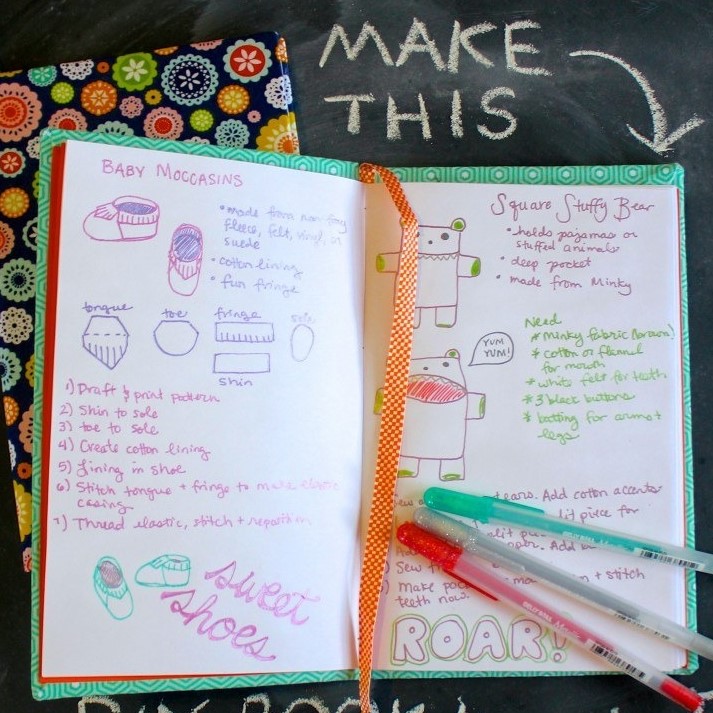 MAKE
THIS
BABY MOCCASINS
• made from non-fray
fleece, felt, vinyl, or
suede
• cotton lining
• fun fringe
tongue
toe
fringe
sole
shin
1) Draft & print pattern
2) Shin to sole
3) toe to sole
4) Create cotton lining
5) Lining in shoe
6) Stitch tongue + fringe to make elastic
casing.
7) Thread elastic, stitch + reposition
sweet
shoes
Square Stuffy Bear
• holds pajamas or
stuffed animals
• deep pocket
• made from Minky
YUM
YUM!
Need
* Minky fabric (brown!)
* cotton or flannel
for mouth
* white felt for teeth
* 3 black buttons
* batting for arms +
legs
ears. Add cotton accents
slit piece for
slit
Add
) Sew
+ stitch
) Make
teeth now.
ROAR!
BOOK